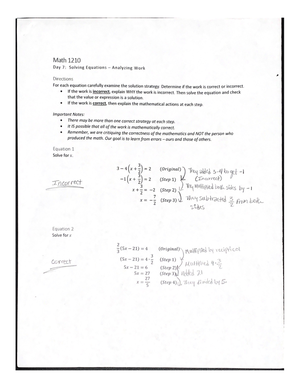 Math 1210
Day 7: Solving Equations – Analyzing Work
Directions
For each equation carefully examine the solution strategy. Determine if the work is correct or incorrect.
• If the work is incorrect, explain WHY the work is incorrect. Then solve the equation and check
that the value or expression is a solution.
• If the work is correct, then explain the mathematical actions at each step.
Important Notes:
• There may be more than one correct strategy at each step.
• It IS possible that all of the work is mathematically correct.
• Remember, we are critiquing the correctness of the mathematics and NOT the person who
produced the math. Our goal is to learn from errors – ours and those of others.
Equation 1
Solve for x.
3 − 4(x + 3/2) = 2 (Original) They added 3-4 to get -1
−1(x + 3/2) = 2 (Step 1) (Incorrect)
Incorrect
x + 3/2 = −2 (Step 2) They multiplied both sides by -1
x = − (Step 3) They subtracted 3/2 from both
sides
Equation 2
Solve for x
2/3(5x − 21) = 4 (Original) multiplied by reciprocal
Correct
(5x − 21) = 4 · 3/2 (Step 1)
5x − 21 = 6 (Step 2)
5x = 27 (Step 3) added 21
x = 27/5 (Step 4) They divided by 5